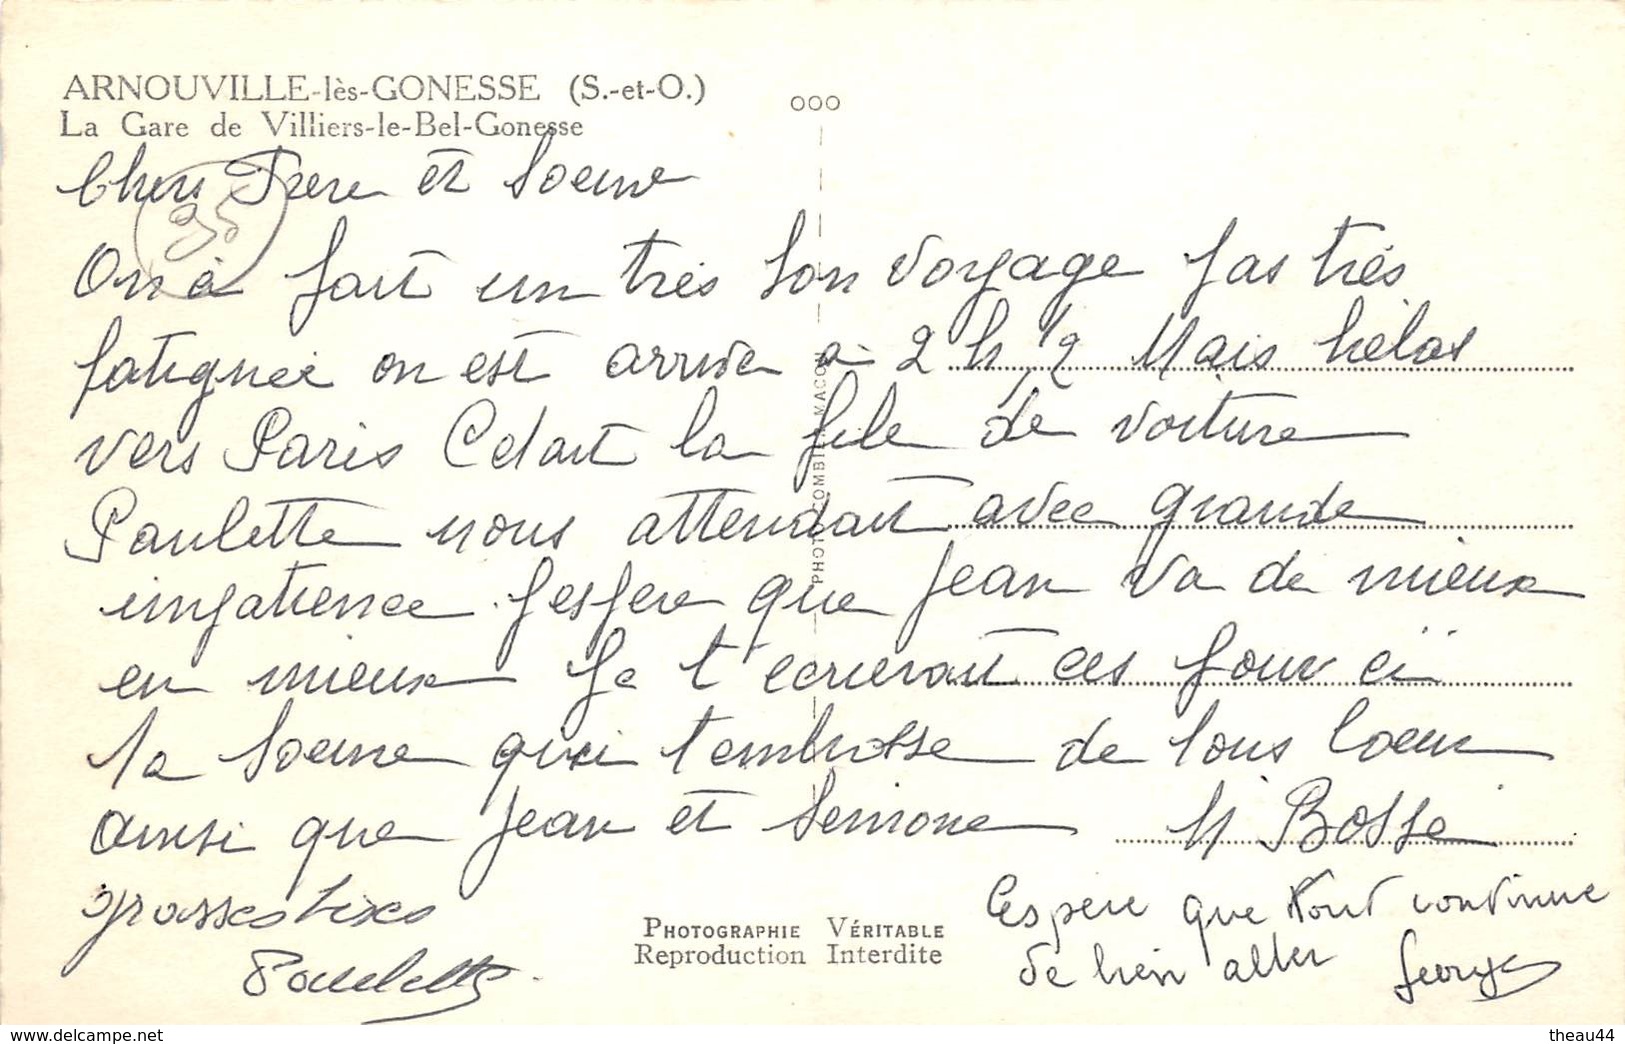 ARNOUVILLE-lès-GONESSE (S.-et-O.)
La Gare de Villiers-le-Bel-Gonesse
ooo
95
Chers Frere et Soeure
On à fait un très bon voyage pas très
fatiguée on est arrivée à 2 h 1/2 Mais hélas
vers Paris Cetait la file de voiture
Paulette nous attendait avec grande
impatience. J'espere que Jean va de mieux
en mieux Je t'ecrierait ces jour ci
Ta Soeure qui t'embrasse de tous Coeur
ainsi que Jean et Simone M Bosse
grosses bises
Paulette
PHOTO COMBIER MACON
PHOTOGRAPHIE VÉRITABLE
Reproduction Interdite
J'espere que tout continue
de bien aller Georges
https://www.delcampe.net
theau44